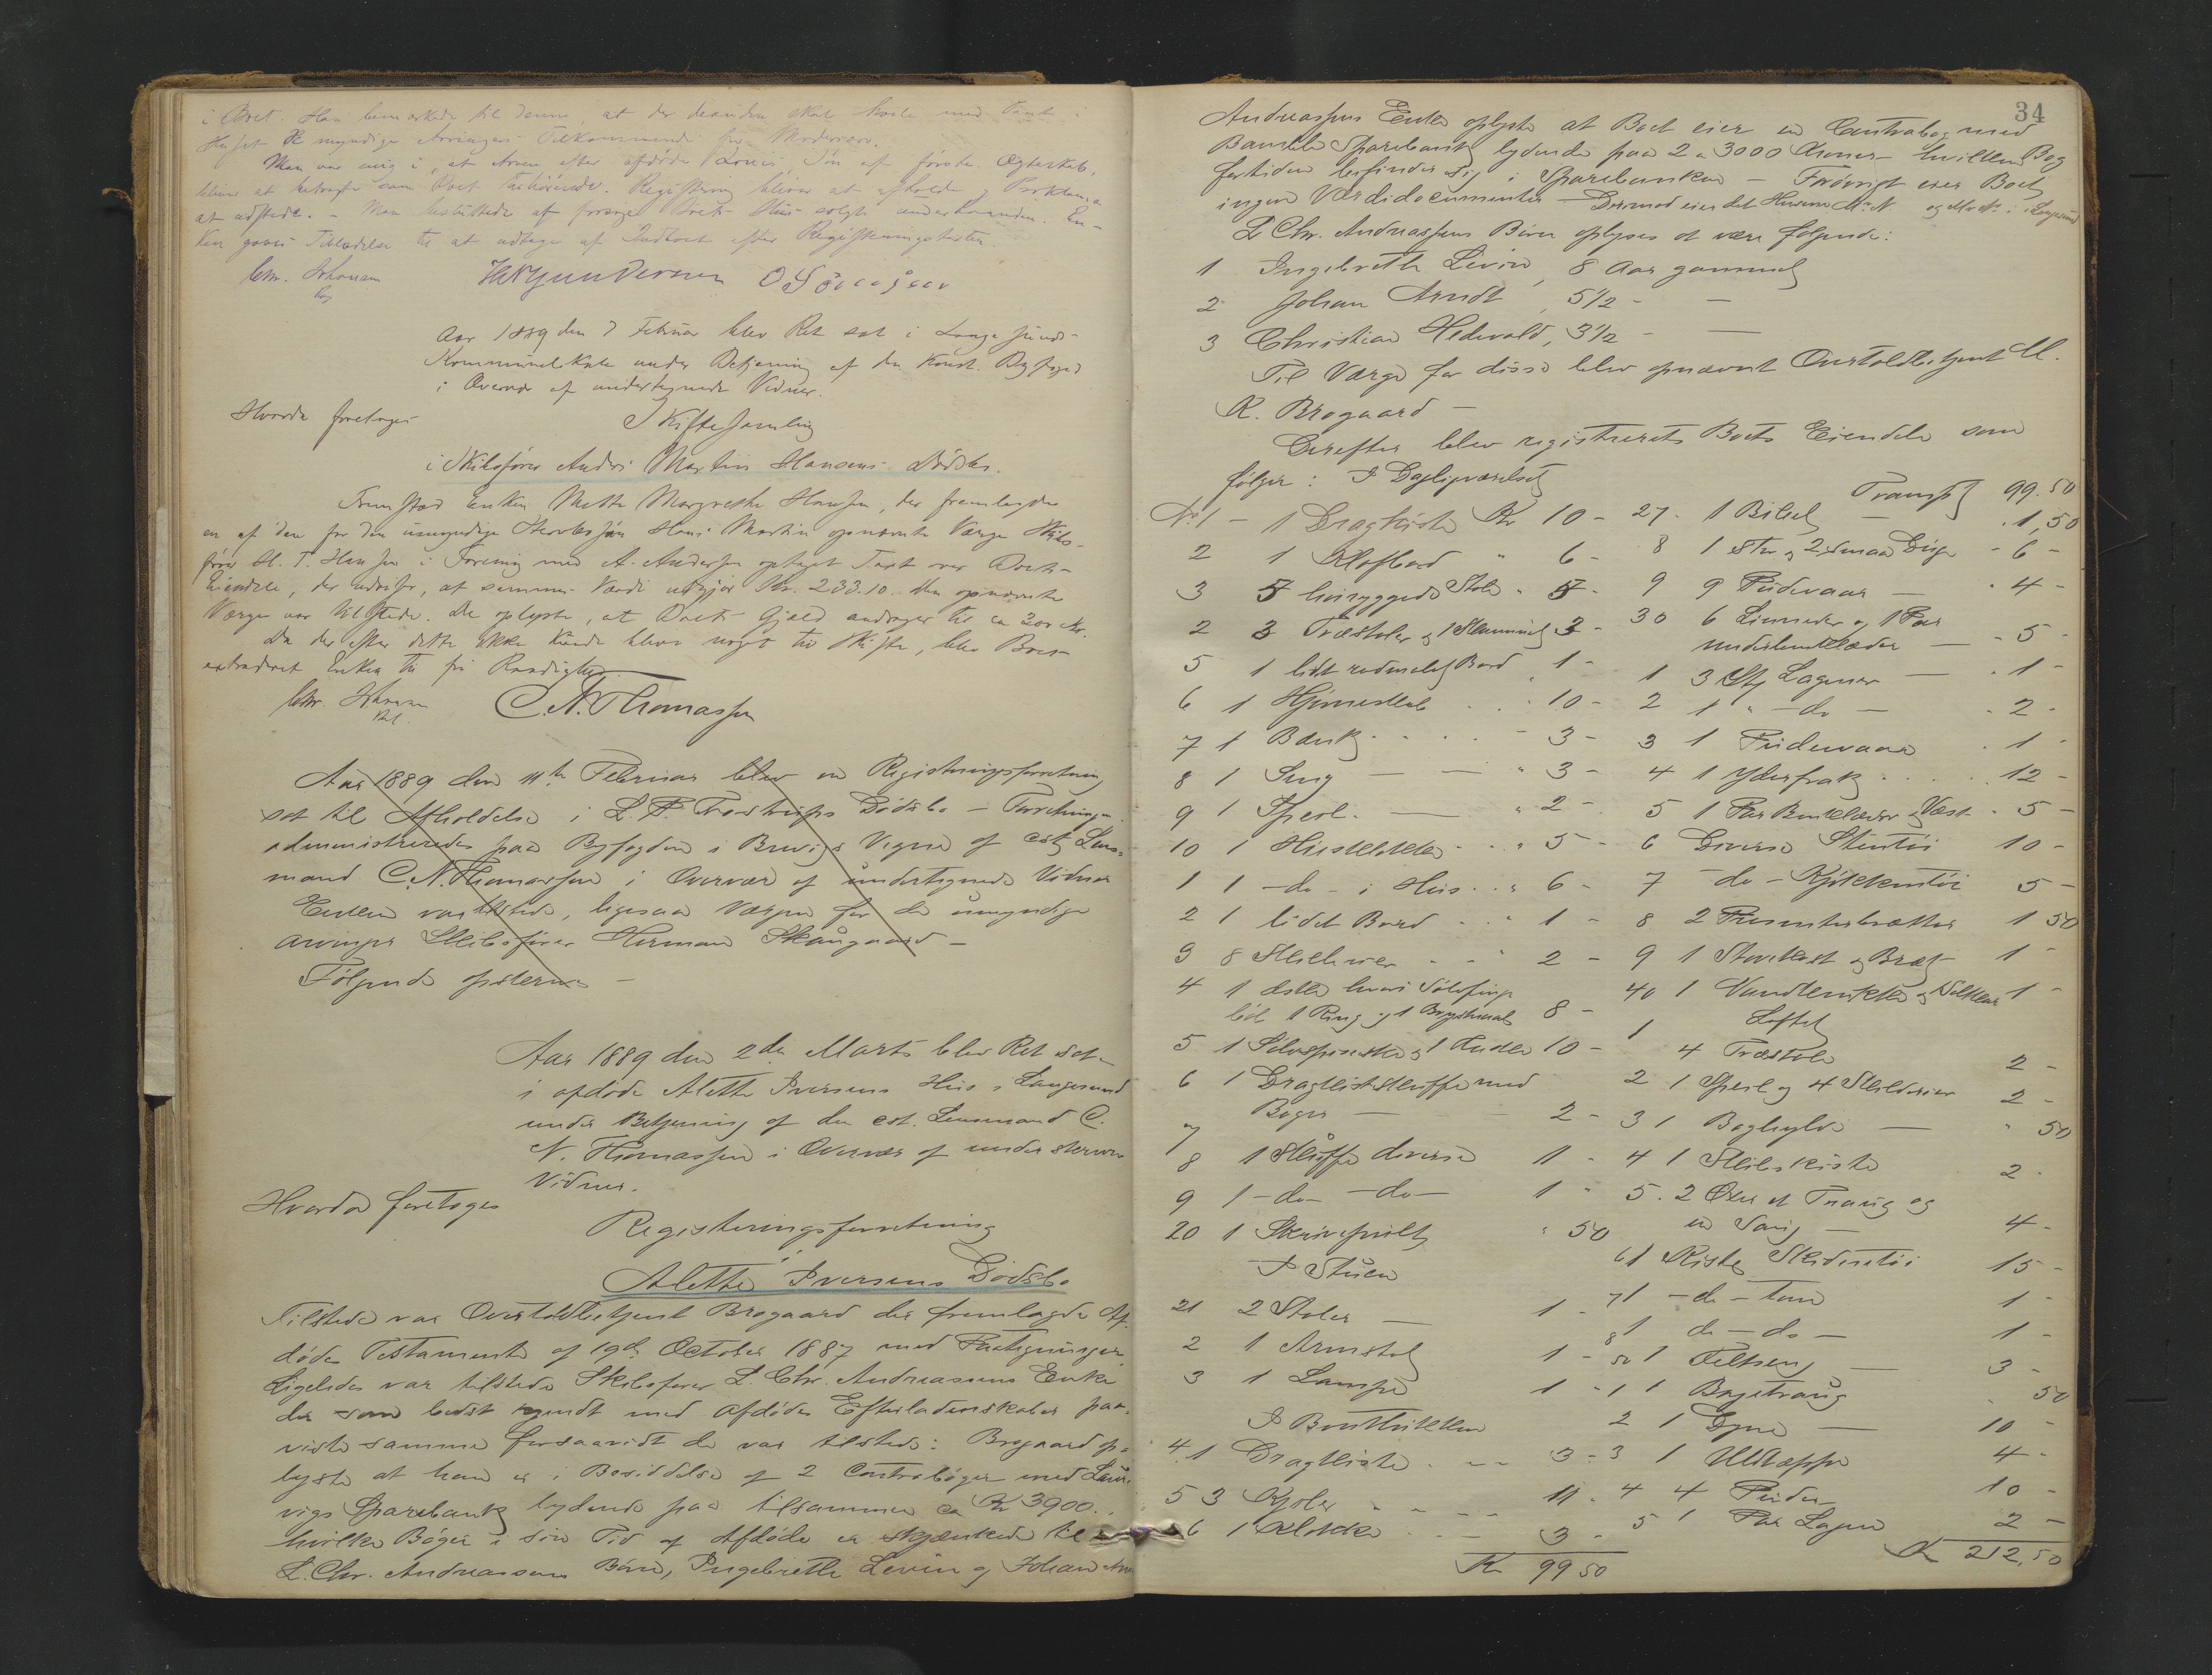 i Boet. Han bemærkede til denne, at der desuden skal hvile med Pant i
Huset de myndige Arvingers Tilkommende fra Mødrearv.
Man var enig i, at Arven efter afdøde Louis, Søn af første Ægteskab,
bliver at betragte som Boet tilhørende. Registrering bliver at afholde og Proklama
at udstede. - Man besluttede at forsøge Boets Hus solgt underhaanden. En-
ken gaves Tilladelse til at udtage af Indboet efter Registreringstaxten.
Chr. Johnsen
Aar 1889 den 7 Februar blev Ret sat i Langesunds
Kommunelokale under Betjening af den konst. Byfoged
i Overvær af undertegnede Vidner.
Hvorda foretoges
Skiftesamling
i Skibsfører Andr. Martin Hansens Dødsbo.
Fremstod Enken Mette Margrethe Hansen, der fremlagde
en af den for den umyndige Søn Hans Martin opnævnte Værge Skibs-
fører H. T. Hansen i Forening med A. Andersen optaget Taxt over Boets
Eiendele, der udviser, at sammes Værdi udgjør Kr. 233.10. Den opnævnte
Værge var tilstede. De oplyste, at Boets Gjæld andrager til ca 300 Kr.
Da der efter dette ikke kunde blive noget til Skifte, blev Boet
extraderet Enken til fri Raadighed.
Chr. Johnsen
C. N. Thomassen
Aar 1889 den 11te Februar blev en Registreringsforretning
sat til Afholdelse i L. P. Trostrups Dødsbo - Forretningen
administreredes paa Byfogden i Brevigs Vegne af cst Lens-
mand C. N. Thomassen i Overvær af undertegnede Vidner
Enken var tilstede, ligesaa Værgen for de umyndige
arvinger Skibsfører Herman Skaugaard -
Følgende
Aar 1889 den 2den Marts blev Ret sat
i afdøde Alette Iversens Hus i Langesund
under Betjening af den cst. Lensmand C.
N. Thomassen i Overvær af underskrevne
Vidner.
Hvorda foretoges
Registreringsforretning
i
Alette Iversens Dødsbo
Tilstede var Overtoldbetjent Brøgaard der fremlagde Af-
dødes Testamente af 19de October 1887 med Paategninger
Ligeledes var tilstede Skibsfører L. Chr. Andreassens Enke
der som bedst kjendt med afdødes Efterladenskaber paa-
viste samme forsaavidt de var tilstede: Brøgaard op-
lyste at han er i Besiddelse af 2 Contrabøger med Laur-
vigs Sparebank lydende paa tilsammen ca Kr 3900.
hvilke Bøger i sin Tid af Afdøde er skjænkede til
L. Chr. Andreassens Børn, Ingebrette Levine og Johan
34
Andreassens Enke oplyste at Boet eier en Contrabog med
Bamble Sparebank lydende paa 2 a 3000 Kroner - hvilken Bog
fortiden befinder sig i Sparebanken - Forøvrigt eier Boet
ingen Værdidocumenter - Derimod eier det Husene M. N. og i Langesund
L Chr. Andreassens Børn oplyses at være følgende:
1 Ingebrette Levine, 8 Aar gammel
2 Johan Arndt, 5 1/2 - -
3 Christian Hedevald, 3 1/2 - -
Til Værge for disse blev opnævnt Overtoldbetjent M.
K. Brøgaard -
Derefter blev registreret Boets Eiendele som
følger: I Dagligværelset
No 1 - 1 Dragkiste Kr 10 -
2 1 Klafbord " 6 -
3 5 høiryggede Stole " 5 -
2 3 Træstoler og 1 Skammel 3 -
5 1 lidt rødmalet Bord 1 -
6 1 Hjørneskab 10 -
7 1 Bænk 3 -
8 1 Seng 3 -
9 1 Speil 2 -
10 1 5 -
1 1 - do - i Hus 6 -
2 1 lidet Bord 1 -
3 8 Skilderier 2 -
4 1 æske hvori Sølvfinger-
bøl 1 Ring og 1 Brystnaal 8 -
5 1 Sølvspiseske og 1 10 -
6 1 Dragkisteskuffe med
Bøger 2 -
7
8 1 Skuffe diverse 1 -
9 1 - do - - do - 1 -
20 1 Skrivepult " 50
I Stuen
21 2 Stoler 1 -
2 1 Armstol 1 -
3 1 Lampe 1 -
I Bordkakken
4 1 Dragkiste 3 -
5 3 Kjoler 11 -
6 1 Klokke 3 -
Kr 99 50
Transp 99.50
27. 1 Bibel 1,50
8 1 Stor og 2 smaa Duge 6 -
9 9 Pudevaar 4 -
30 6 Linneder og 1 Par
underbenklæder 5 -
1 3 Stk Lagener 1 -
2 1 " - do - 2 -
3 1 Pudevaar 1 -
4 1 Yderfrak 12 -
5 1 Par Benklæder og Vest 5 -
6 Diverse Stentøi 10 -
7 - do - Kjøkkentøi 5 -
8 2 Presenterbrætter 1 50
9 1 og Bræt 1 -
40 1 1 -
Loftet
1 4 Træstole 2 -
2 1 Speil og 4 Skilderier 2 -
3 1 Boghylde " 50
4 1 Skibskiste 2 -
5. 2 Øxer et Traug og
en Saug 4 -
6 1 Kiste 15 -
7 1 - do - tom 1 -
8 1 do - do - 1 -
50 1 Feltseng 3 -
1 1 Bagetraug 50
2 1 Dyne 10 -
3 1 Uldtæppe 4 -
4 4 Puder 10 -
5 1 Par Lagen 2 -
Kr 212,50